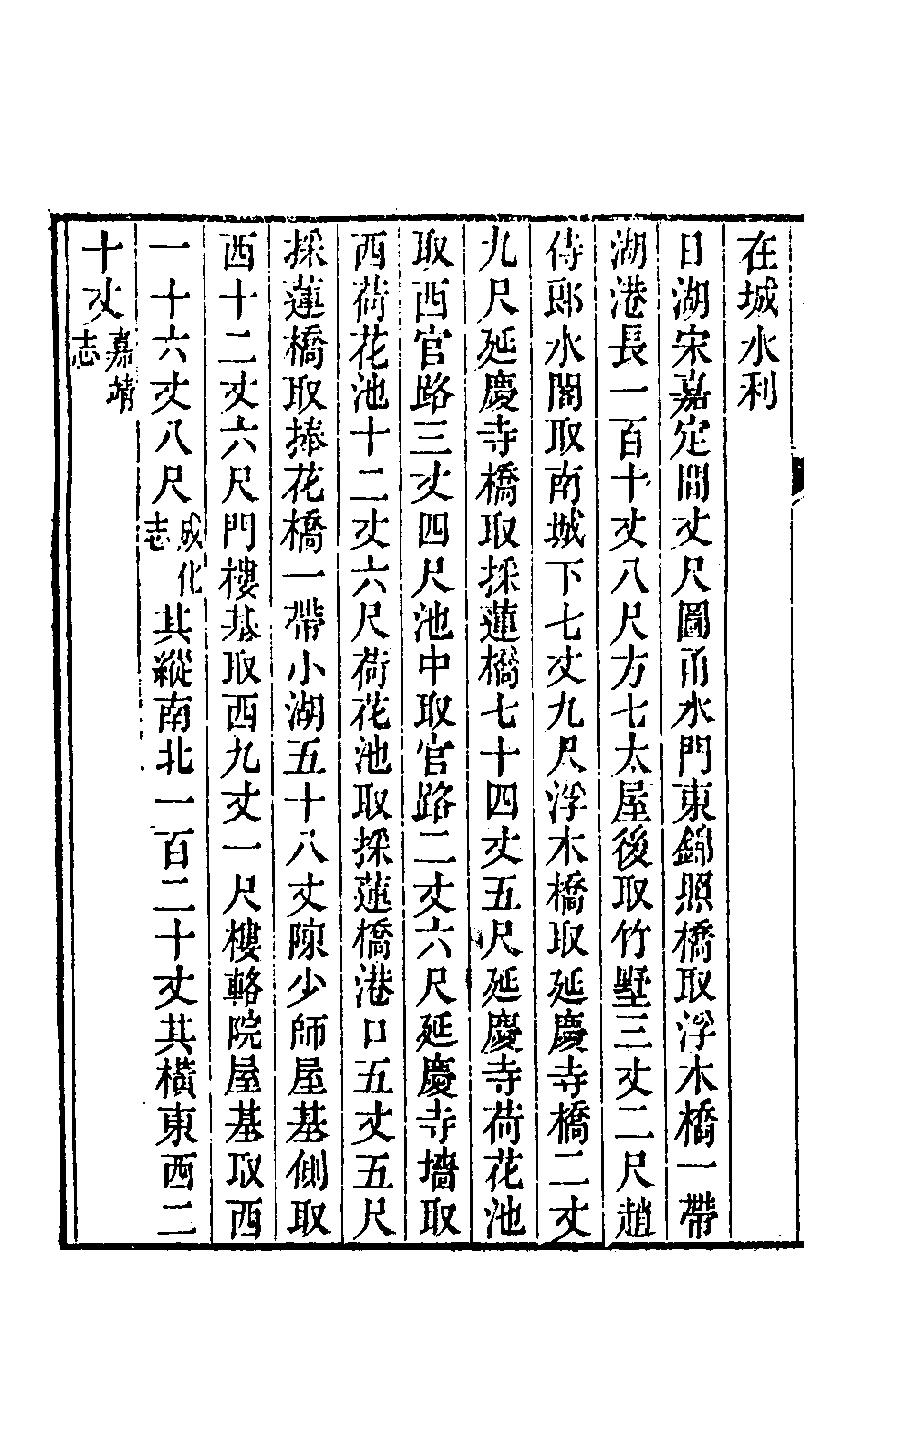 在城水利
日湖宋嘉定間丈尺圖甬水門東錦照橋取浮木橋一帶
湖港長一百十丈八尺方七太屋後取竹墅三丈二尺趙
侍郎水閣取南城下七丈九尺浮木橋取延慶寺橋二丈
九尺延慶寺橋取採蓮橋七十四丈五尺延慶寺荷花池
取西官路三丈四尺池中取官路二丈六尺延慶寺墻取
西荷花池十二丈六尺荷花池取採蓮橋港口五丈五尺
採蓮橋取捧花橋一帶小湖五十八丈陳少師屋基側取
西十二丈六尺門樓基取西九丈一尺樓輅院屋基取西
一十六丈八尺成化志其縱南北一百二十丈其橫東西二
十丈嘉靖志